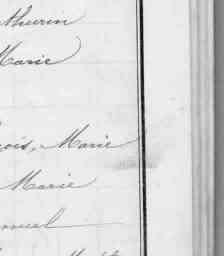 thurin
Marie
çois, Marie
Marie
nuel